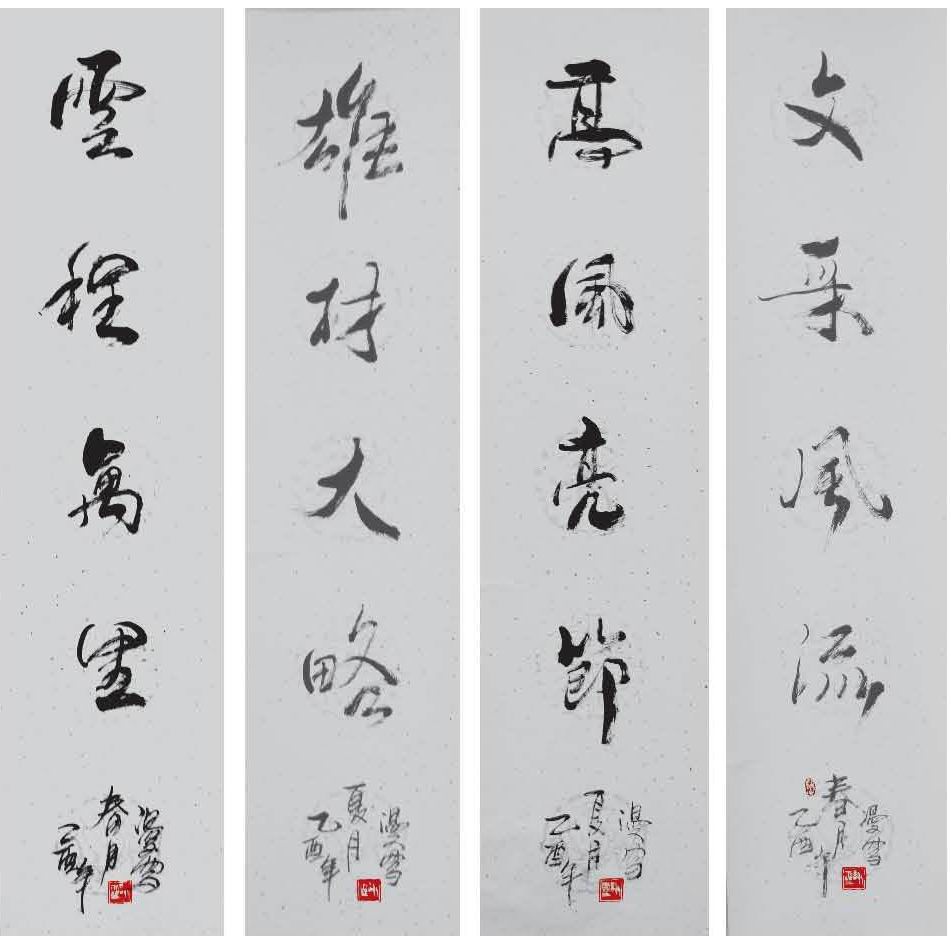 文采風流
乙酉年
春月
漫雪
高風亮節
乙酉年
夏月
漫雪
雄材大略
乙酉年
夏月
漫雪
雲程萬里
乙酉年
春月
漫雪